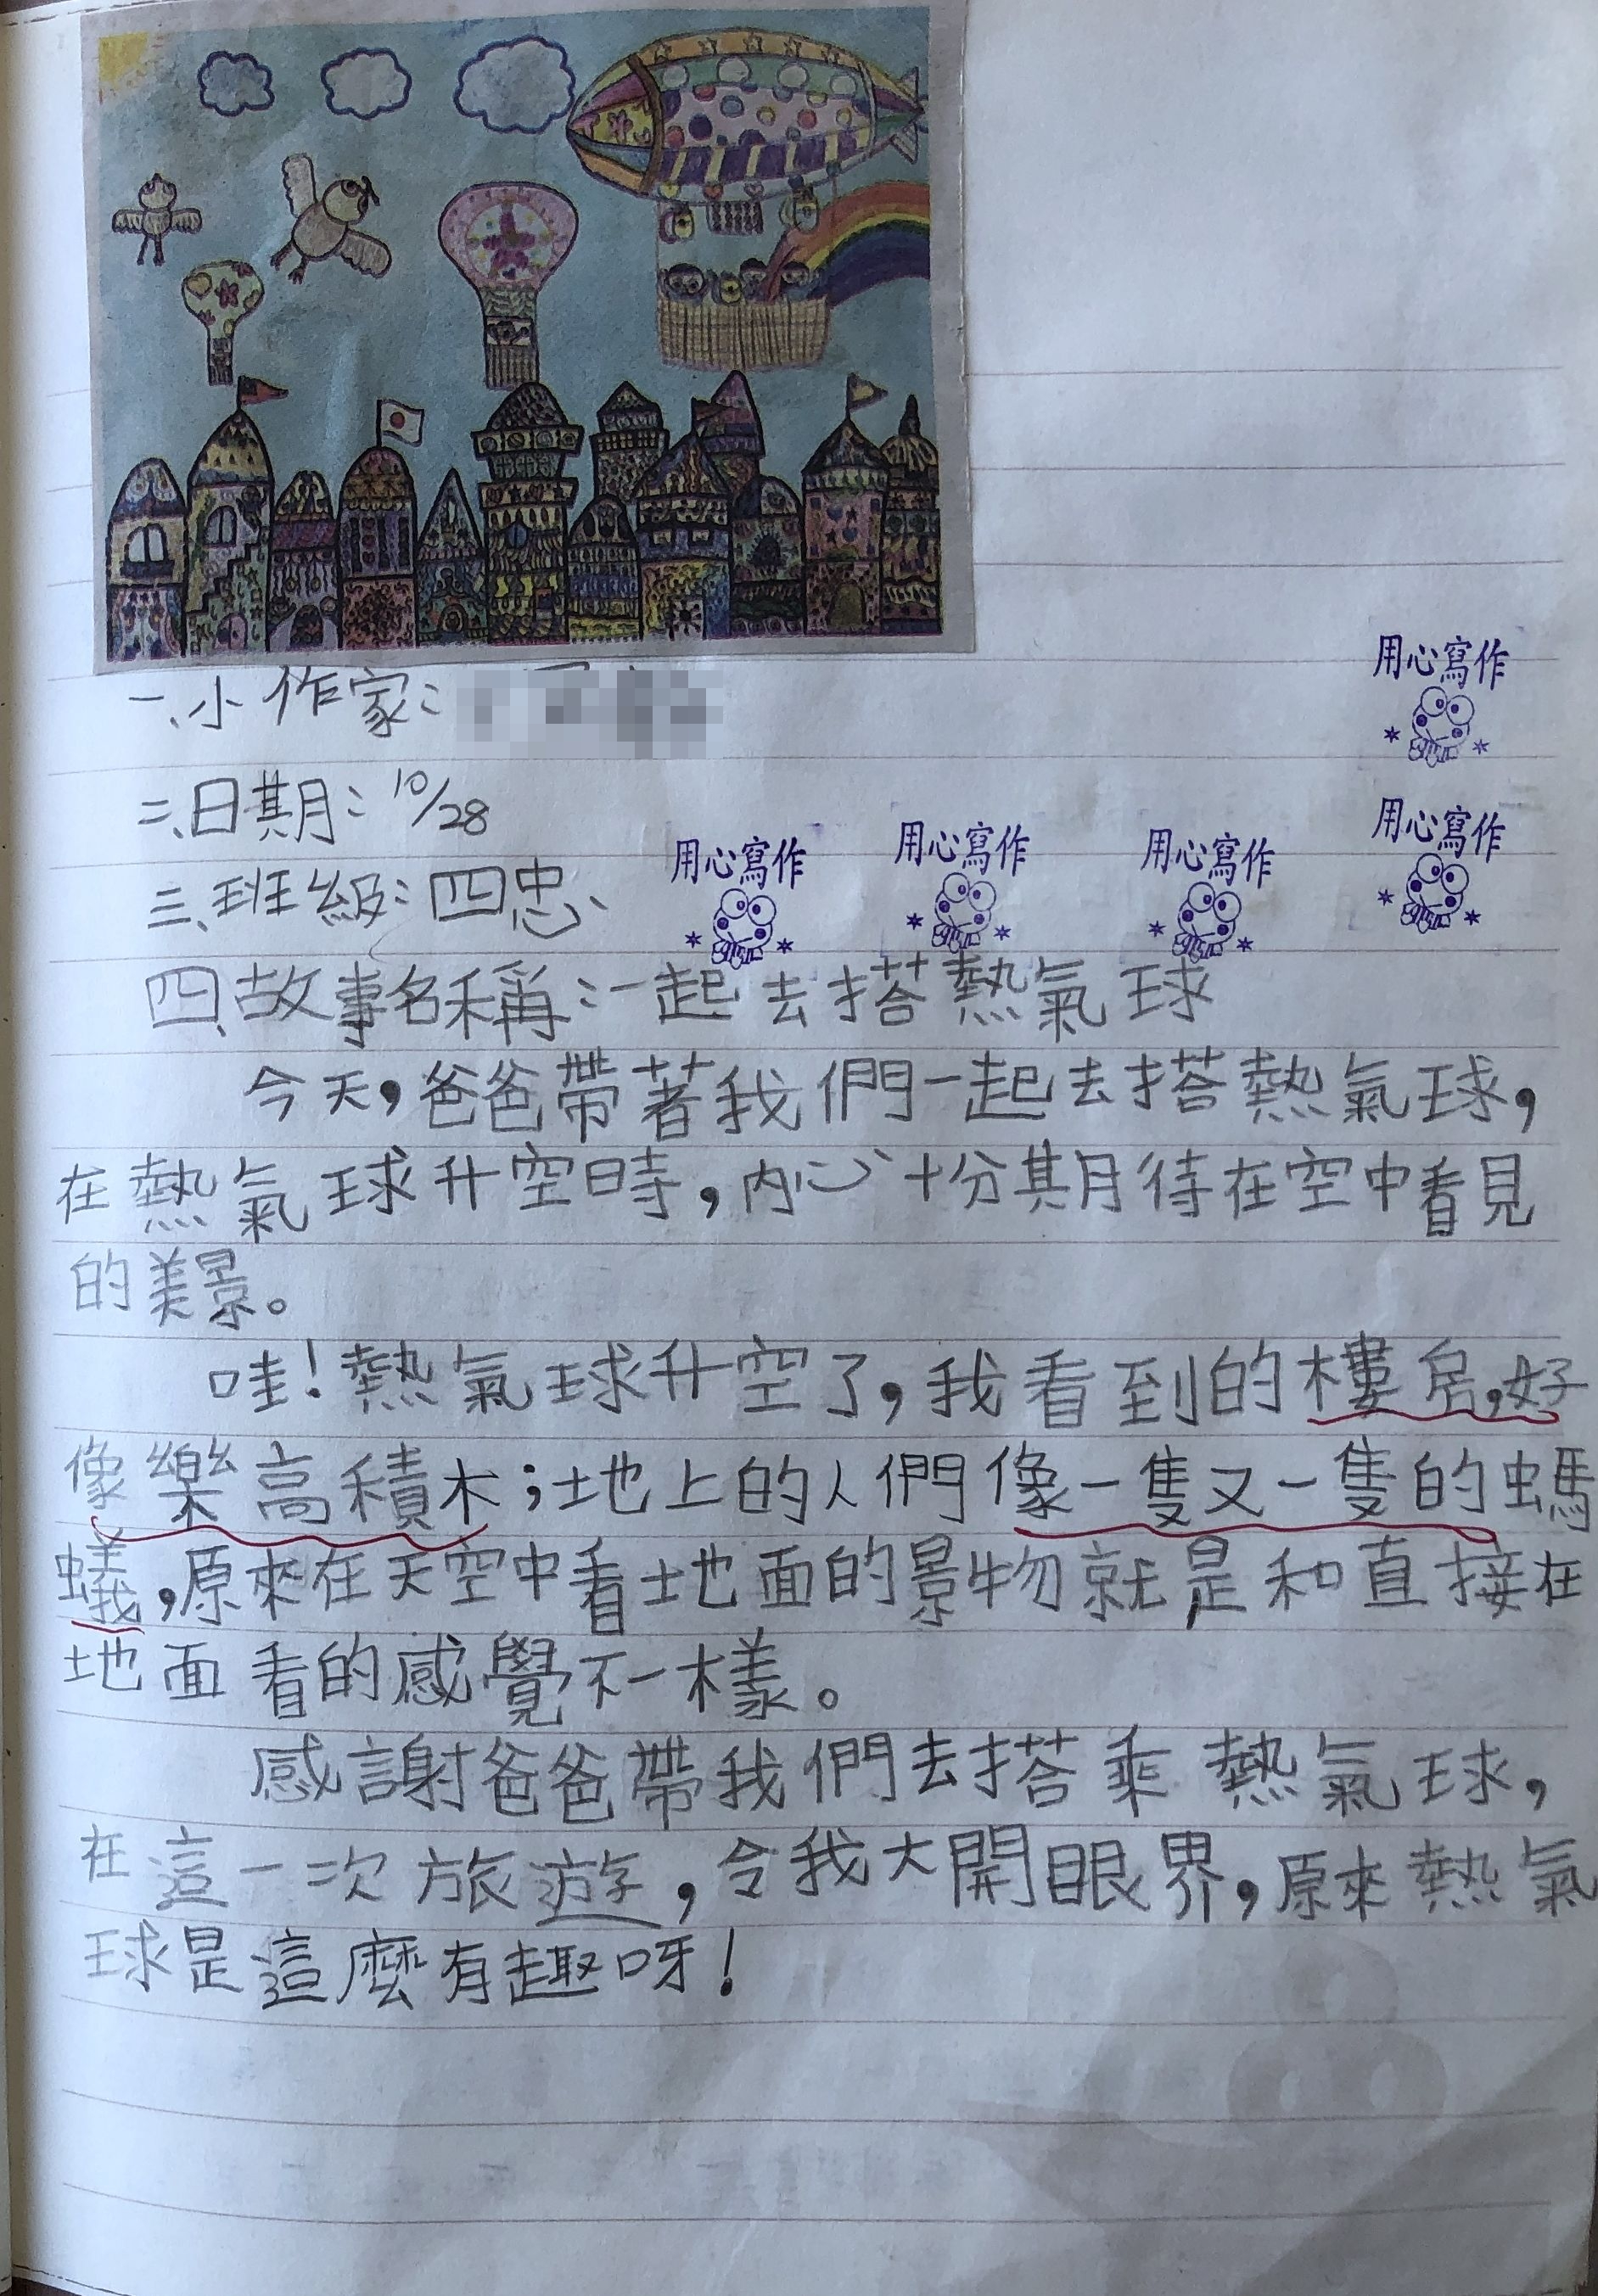 一、小作家：
用心寫作
二、日期：10/28
用心寫作
三、班級：四忠、
用心寫作
用心寫作
用心寫作
四、故事名稱：一起去搭熱氣球
今天，爸爸帶著我們一起去搭熱氣球，
在熱氣球升空時，內心十分期待在空中看見
的美景。
哇！熱氣球升空了，我看到的樓房，好
像樂高積木；地上的人們像一隻又一隻的螞
蟻，原來在天空中看地面的景物就是和直接在
地面看的感覺不一樣。
感謝爸爸帶我們去搭乘熱氣球，
在這一次旅遊，令我大開眼界，原來熱氣
球是這麼有趣呀！